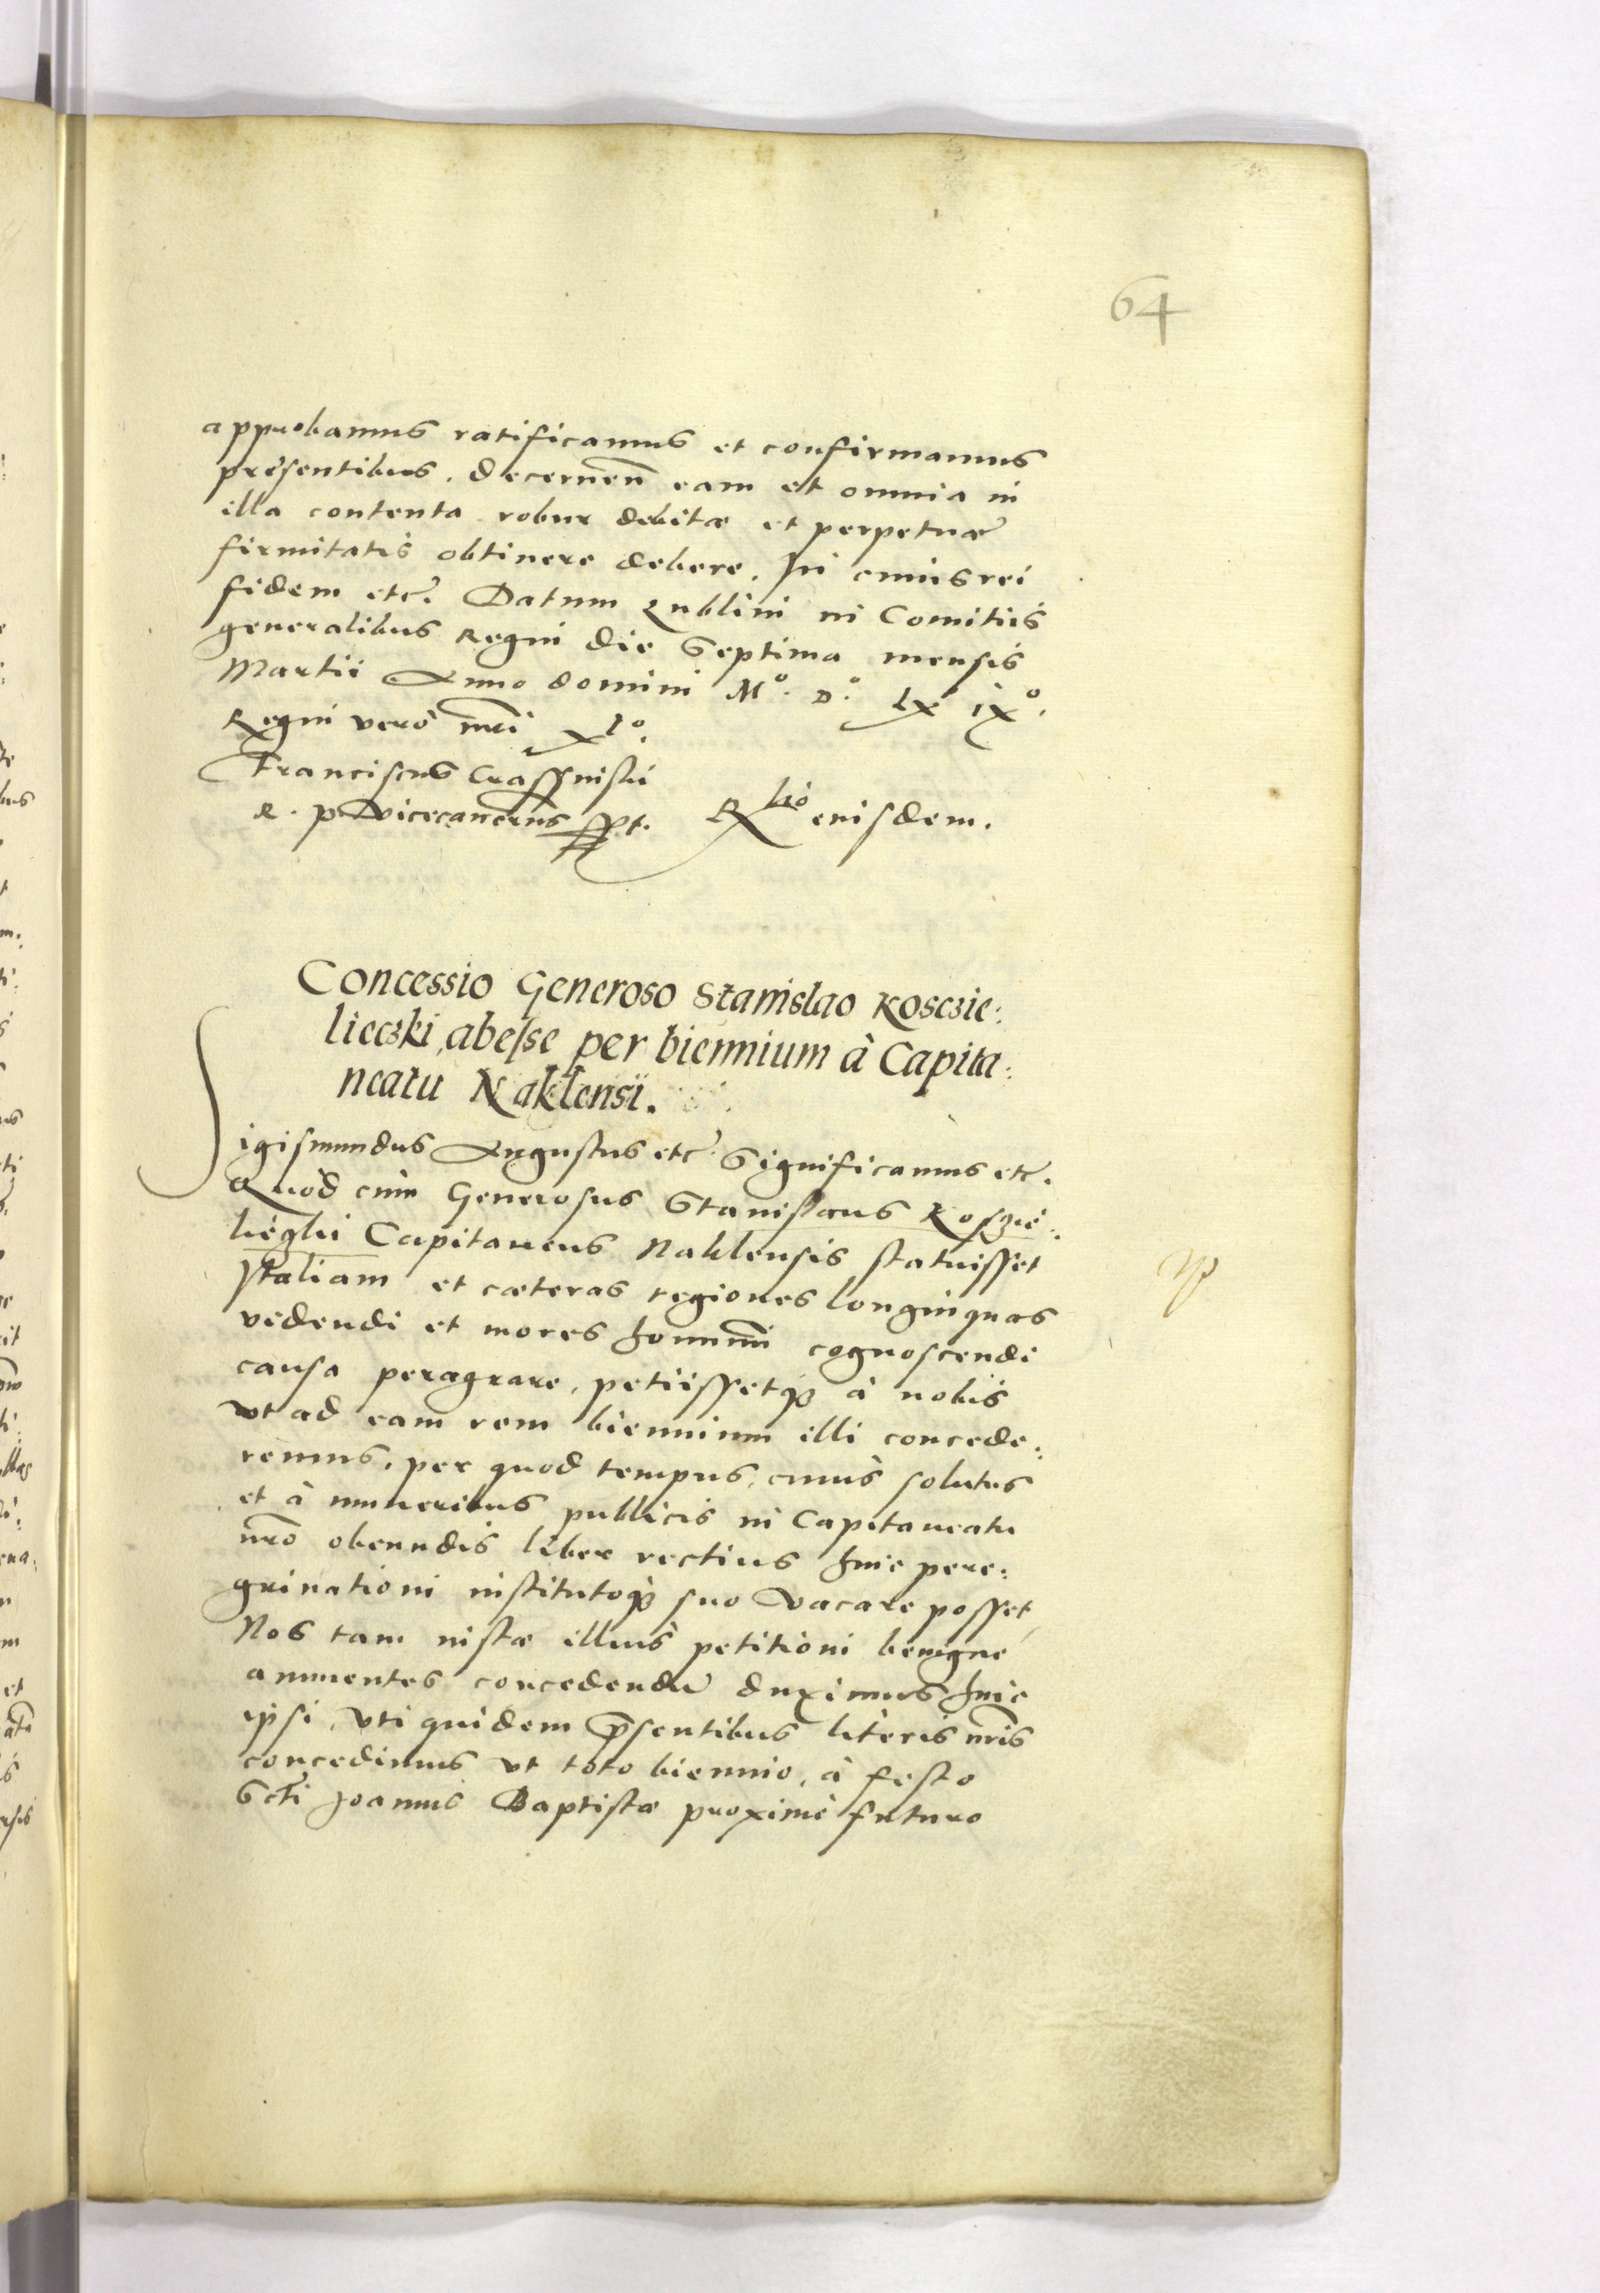 64
approbamus ratificamus et confirmamus
presentibus. decernen̄ eam et omnia in
illa contenta robur debitæ et perpetuæ
firmitatis obtinere debere. In cuius rei
fidem etc. Datum Lublini in Comitiis
generalibus Regni die Septima mensis
Martii Anno domini Mº. Dº. Lxº ixº.
Regni verò nr̄i xlº.
Franciscus Crassinski
R. p. Vicecancrius sspt. Rlтio eiusdem.
Concessio Generoso Stanislao Kosczie:
lieczki abesse per biennium à Capita:
neatu Naklensi.
Sigismundus Augustus etc. Significamus etc.
Quòd cum Generosus Stanislaus Koszcié:
lieczki Capitaneus Naklensis statuisset
Italiam et cæteras regiones longinquas
videndi et mores hominū cognoscendi
causa peragrare, petiissetq̃ à nobis
vt ad eam rem biennium illi concede:
remus, per quod tempus, curis solutus
et à muneribus publicis in Capitaneatu
nr̄o obeundis liber rectius huic pere:
grinationi institutoq̃ suo vacare posset,
Nos tam iustæ illius petitioni benigne
annuentes concedendū duximus huic
ipsi, vti quidem p̄sentibus literis nr̄is
concedimus vt toto biennio, à festo
Scti Joannis Baptistæ proximè futuro